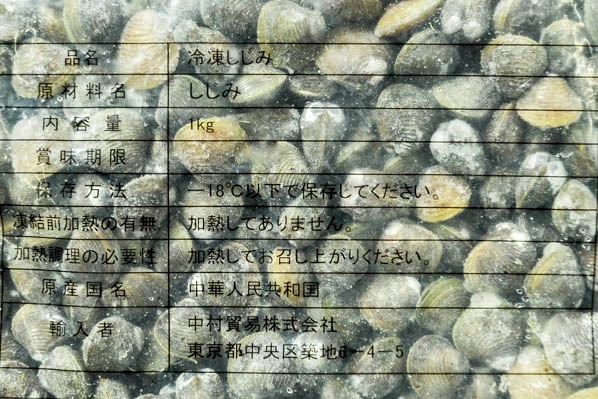 品名 冷凍しじみ
原材料名 しじみ
内容量 1kg
賞味期限
保存方法 －18℃以下で保存してください。
凍結前加熱の有無 加熱してありません。
加熱調理の必要性 加熱してお召し上がりください。
原産国名 中華人民共和国
輸入者 中村貿易株式会社
東京都中央区築地6－4－5